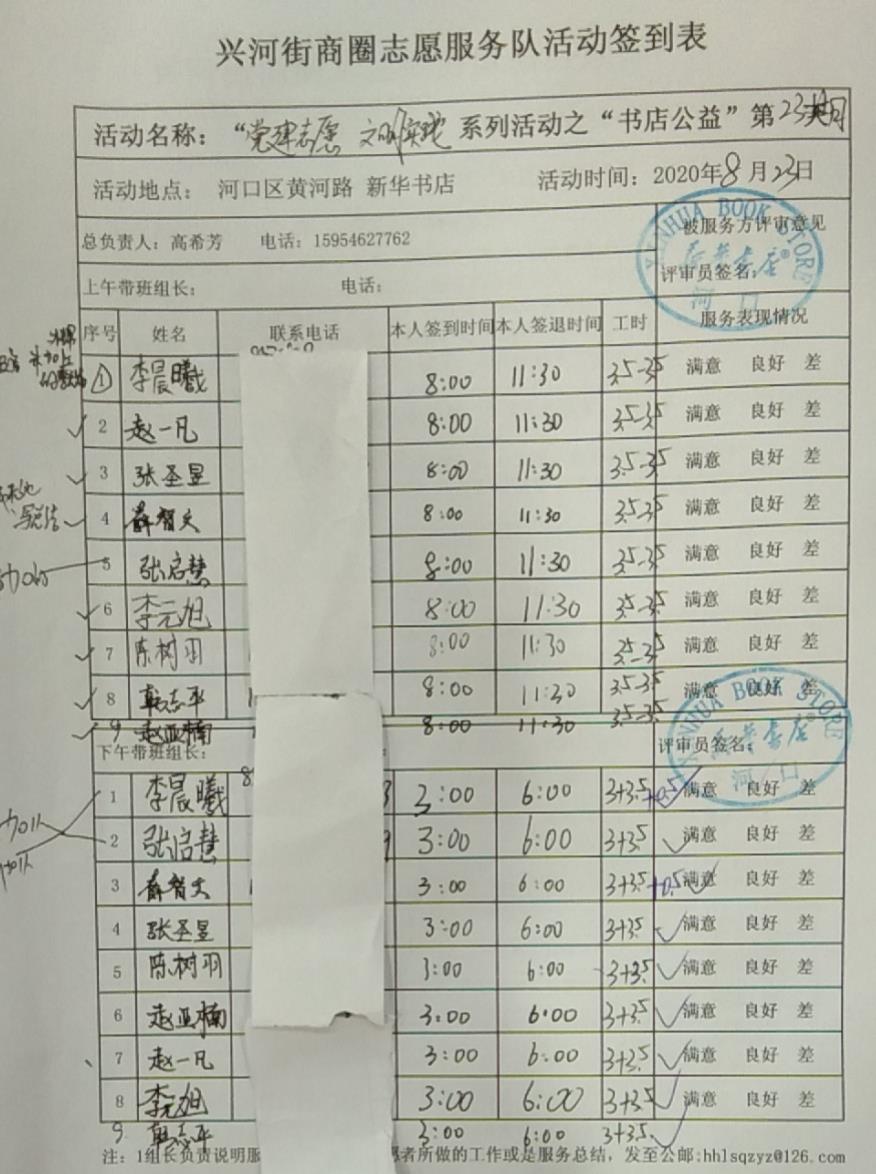 兴河街商圈志愿服务队活动签到表
活动名称：“党建志愿 文明实践 系列活动之“书店公益”第23期
活动地点： 河口区黄河路 新华书店 活动时间：2020年8月23日
总负责人：高希芳 电话：15954627762 被服务方评审意见
XINHUA BOOK STORE
新华书店
河口
评审员签名：
上午带班组长： 电话：
序号 姓名 联系电话 本人签到时间 本人签退时间 工时 服务表现情况
1 李晨曦 8:00 11:30 3.5-3.5 满意 良好 差
2 赵一凡 8:00 11:30 3.5-3.5 满意 良好 差
3 张圣昱 8:00 11:30 3.5-3.5 满意 良好 差
4 薛智文 8:00 11:30 3.5-3.5 满意 良好 差
5 张启慧 8:00 11:30 3.5-3.5 满意 良好 差
6 李元旭 8:00 11:30 3.5-3.5 满意 良好 差
7 陈树羽 8:00 11:30 3.5-3.5 满意 良好 差
8 韩志平 8:00 11:30 3.5-3.5 满意 良好 差
9 赵亚楠 8:00 11:30 3.5-3.5
下午带班组长： 评审员签名：
XINHUA BOOK STORE
新华书店
河口
1 李晨曦 3:00 6:00 3+3.5 +0.5 满意 良好 差
2 张启慧 3:00 6:00 3+3.5 满意 良好 差
3 薛智文 3:00 6:00 3+3.5 +0.5 满意 良好 差
4 张圣昱 3:00 6:00 3+3.5 满意 良好 差
5 陈树羽 3:00 6:00 3+3.5 满意 良好 差
6 赵亚楠 3:00 6:00 3+3.5 满意 良好 差
7 赵一凡 3:00 6:00 3+3.5 满意 良好 差
8 李元旭 3:00 6:00 3+3.5 满意 良好 差
9. 韩志平 3:00 6:00 3+3.5
注：1组长负责说明服 愿者所做的工作或是服务总结，发至公邮:hhlsqzyz@126.com